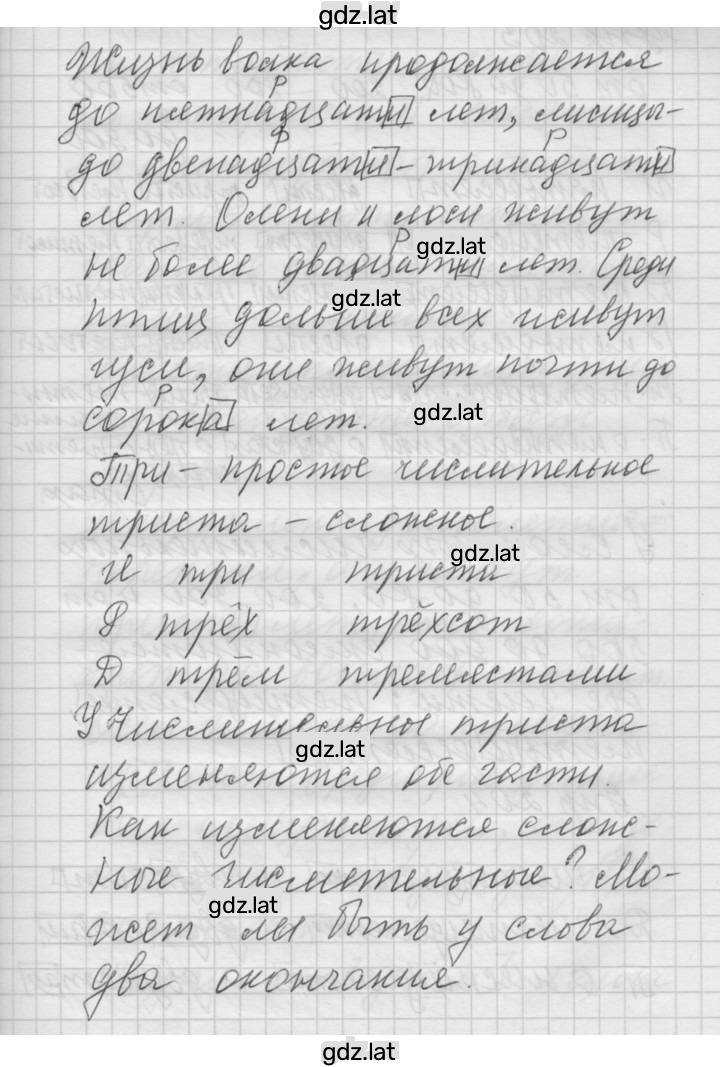 gdz.lat
Жизнь волка продолжается
Р
до пятнадцати лет, лисицы-
Р Р
до двенадцати - тринадцати
лет. Олени и лоси живут
Р gdz.lat
не более двадцати лет. Среди
gdz.lat
птиц дольше всех живут
гуси, они живут почти до
Р gdz.lat
сорока лет.
Три - простое числительное
триста - сложное.
gdz.lat
И три триста
Р трёх трёхсот
Д трём тремястами
У числительное триста
gdz.lat
изменяются обе части.
Как изменяются слож-
ные числительные? Мо-
gdz.lat
жет ли быть у слова
два окончания.
gdz.lat